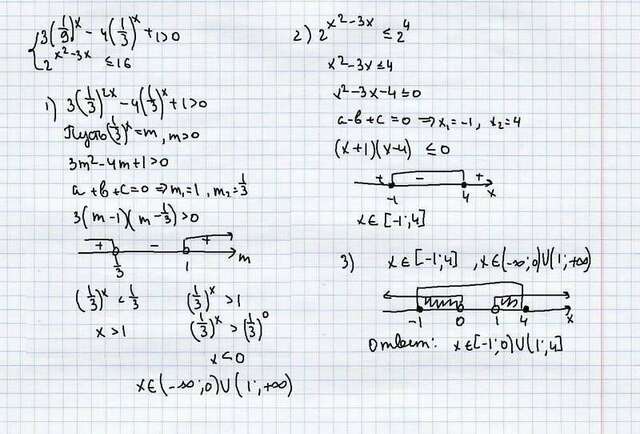 { 3(1/9)^x - 4(1/3)^x + 1 > 0
2^(x²-3x) ≤ 16
1) 3(1/3)^(2x) - 4(1/3)^x + 1 > 0
Пусть (1/3)^x = m, m > 0
3m² - 4m + 1 > 0
a + b + c = 0 ⇒ m₁ = 1, m₂ = 1/3
3(m - 1)(m - 1/3) > 0
+ - +
1/3 1 m
(1/3)^x < 1/3 (1/3)^x > 1
x > 1 (1/3)^x > (1/3)^0
x < 0
x ∈ (-∞; 0) ∪ (1; +∞)
2) 2^(x²-3x) ≤ 2^4
x² - 3x ≤ 4
x² - 3x - 4 ≤ 0
a - b + c = 0 ⇒ x₁ = -1, x₂ = 4
(x + 1)(x - 4) ≤ 0
+ - +
-1 4 x
x ∈ [-1; 4]
3) x ∈ [-1; 4], x ∈ (-∞; 0) ∪ (1; +∞)
-1 0 1 4 x
Ответ: x ∈ [-1; 0) ∪ (1; 4]